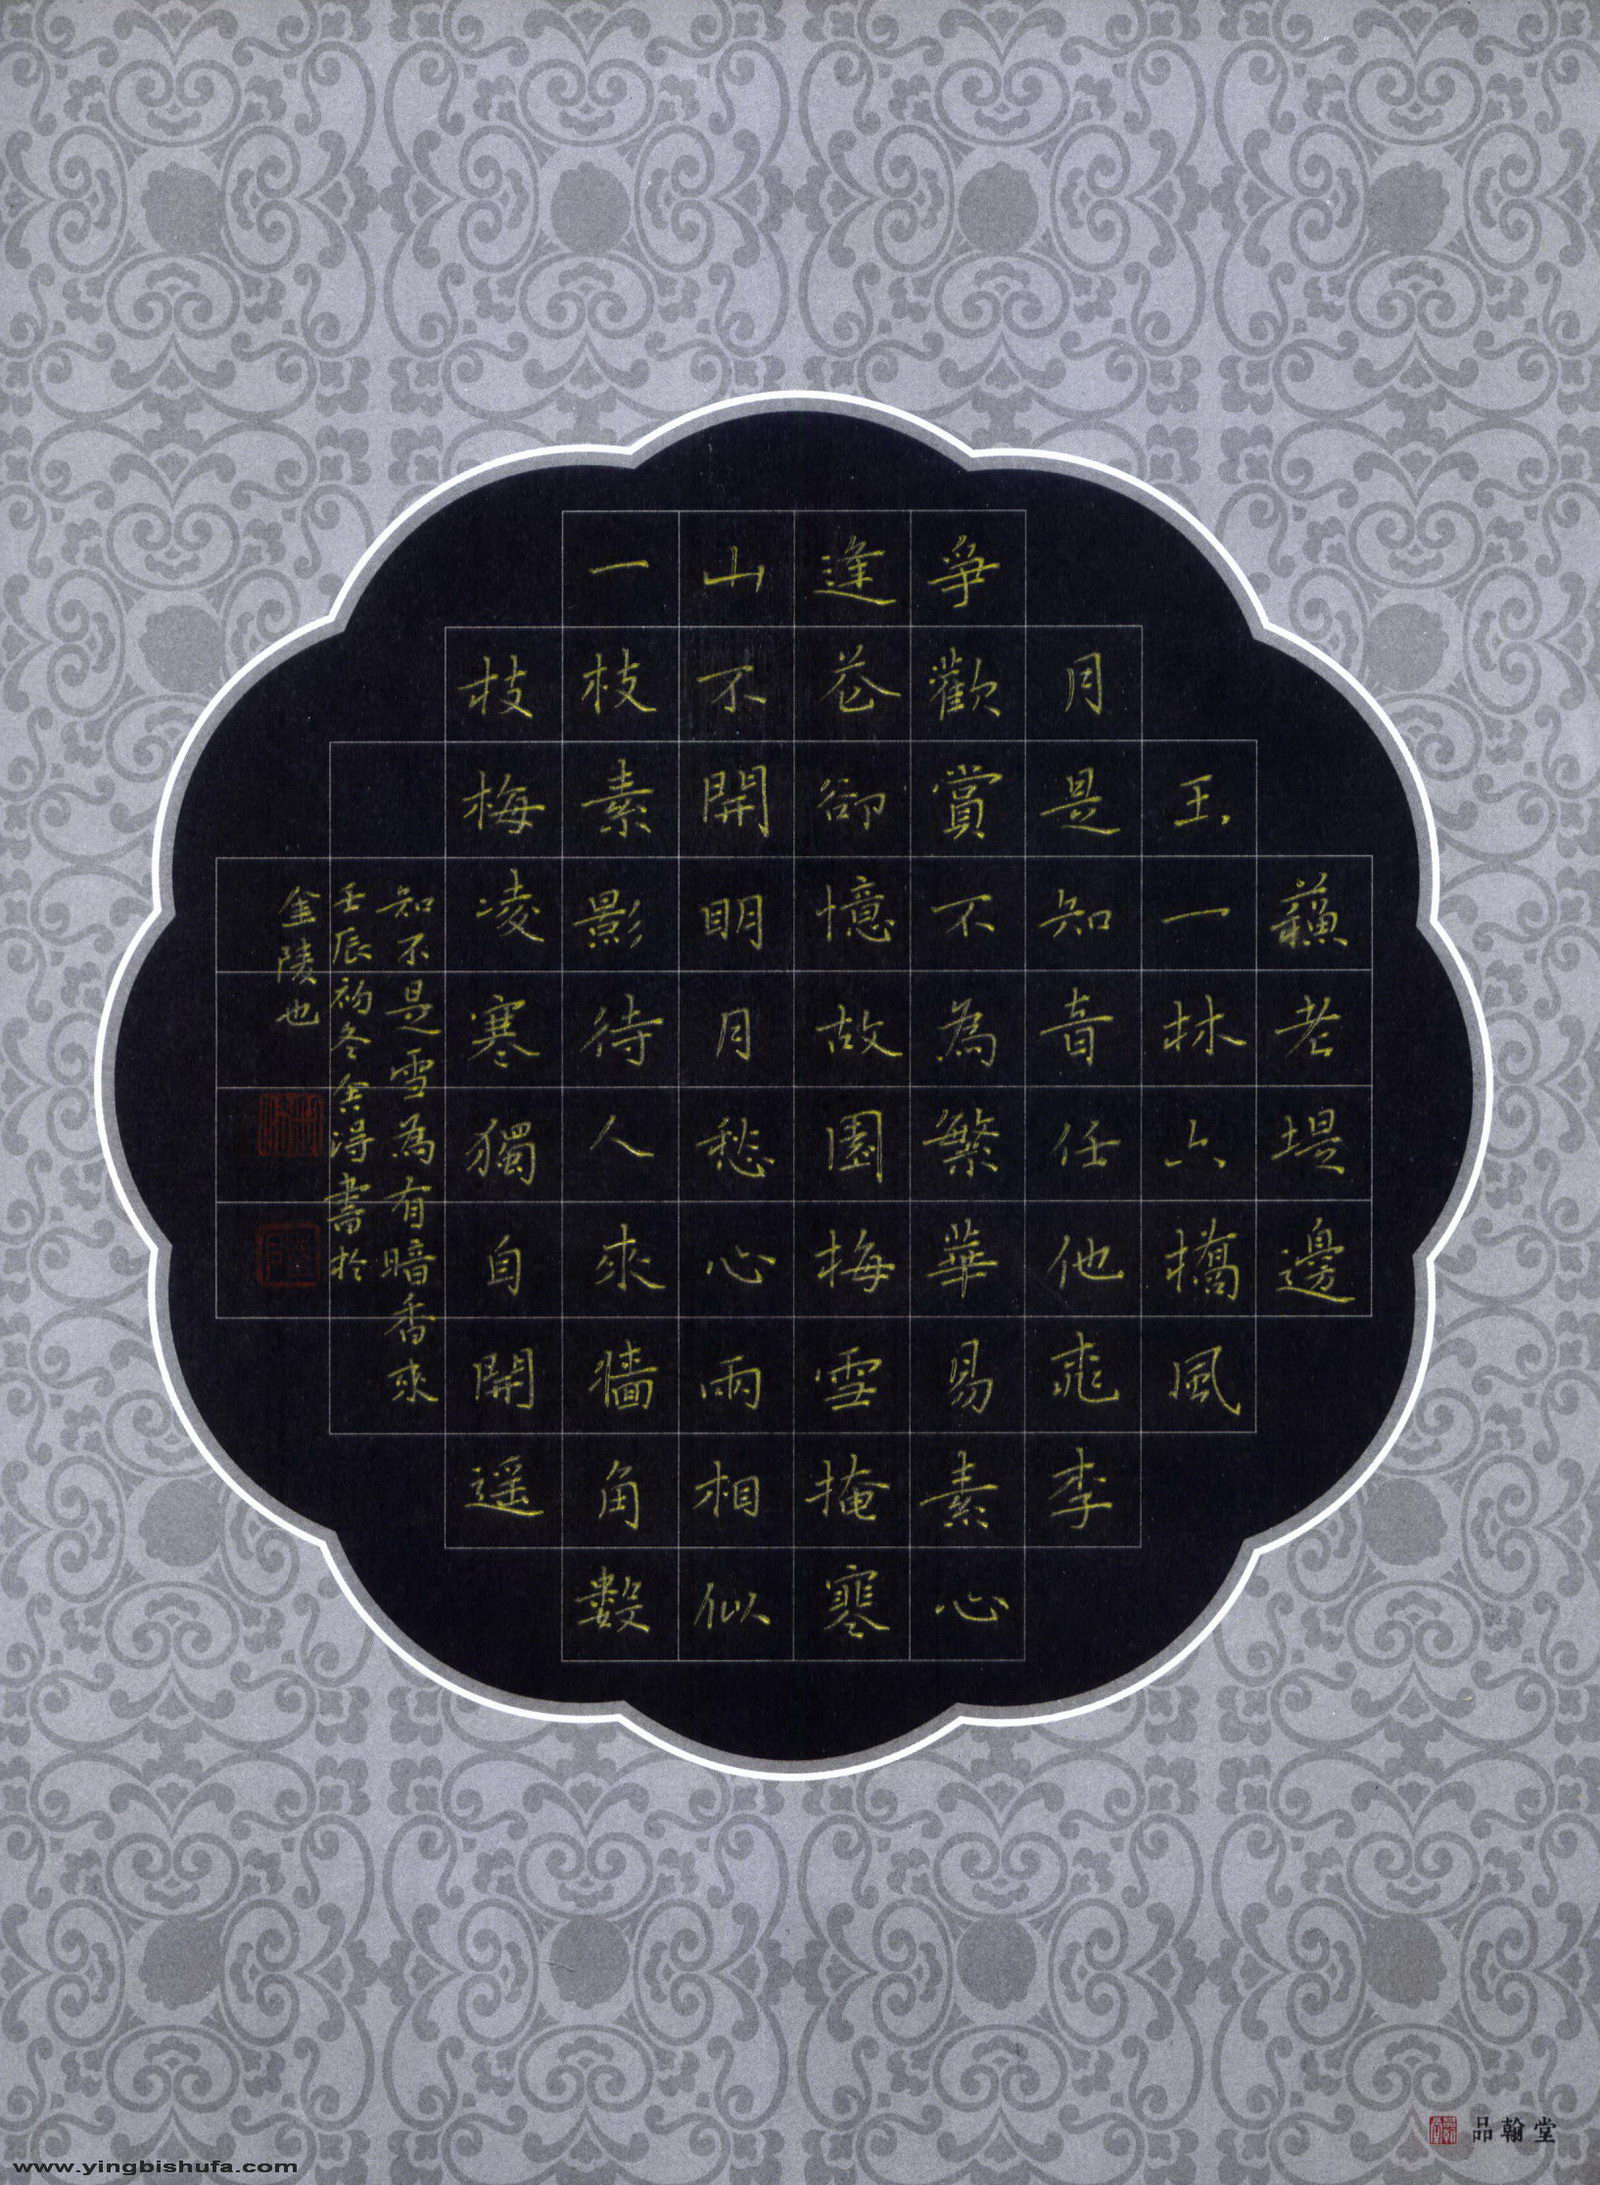 蘓老堤邊
玉一林六橋風
月是知音任他桃李
爭歡賞不為繁華易素心
逢花卻憶故園梅雪掩寒
山不開明月愁心兩相似
一枝素影待人來牆角數
枝梅凌寒獨自開遥
知不是雪為有暗香來
壬辰初冬金得書於
金陵也
品翰堂
www.yingbishufa.com